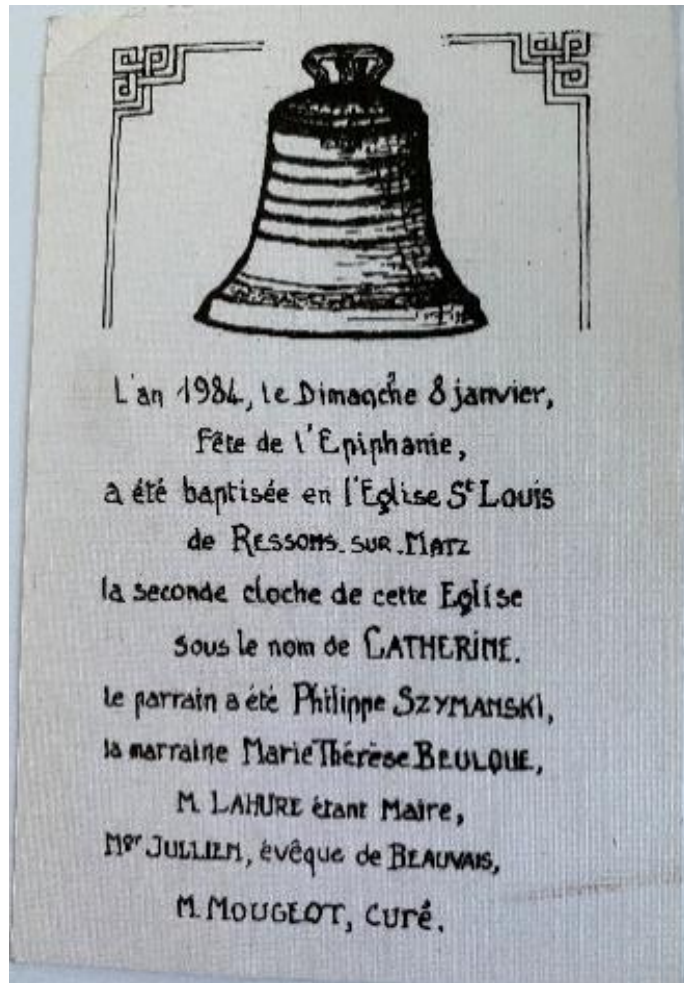 L'an 1984, le Dimanche 8 janvier,
Fête de l'Epiphanie,
a été baptisée en l'Eglise St Louis
de RESSONS-SUR-MATZ
la seconde cloche de cette Eglise
sous le nom de CATHERINE.
le parrain a été Philippe SZYMANSKI,
la marraine Marie Thérèse BEULQUE,
M. LAHURE étant Maire,
Mgr JULLIEN, évêque de BEAUVAIS,
M. MOUGEOT, curé.